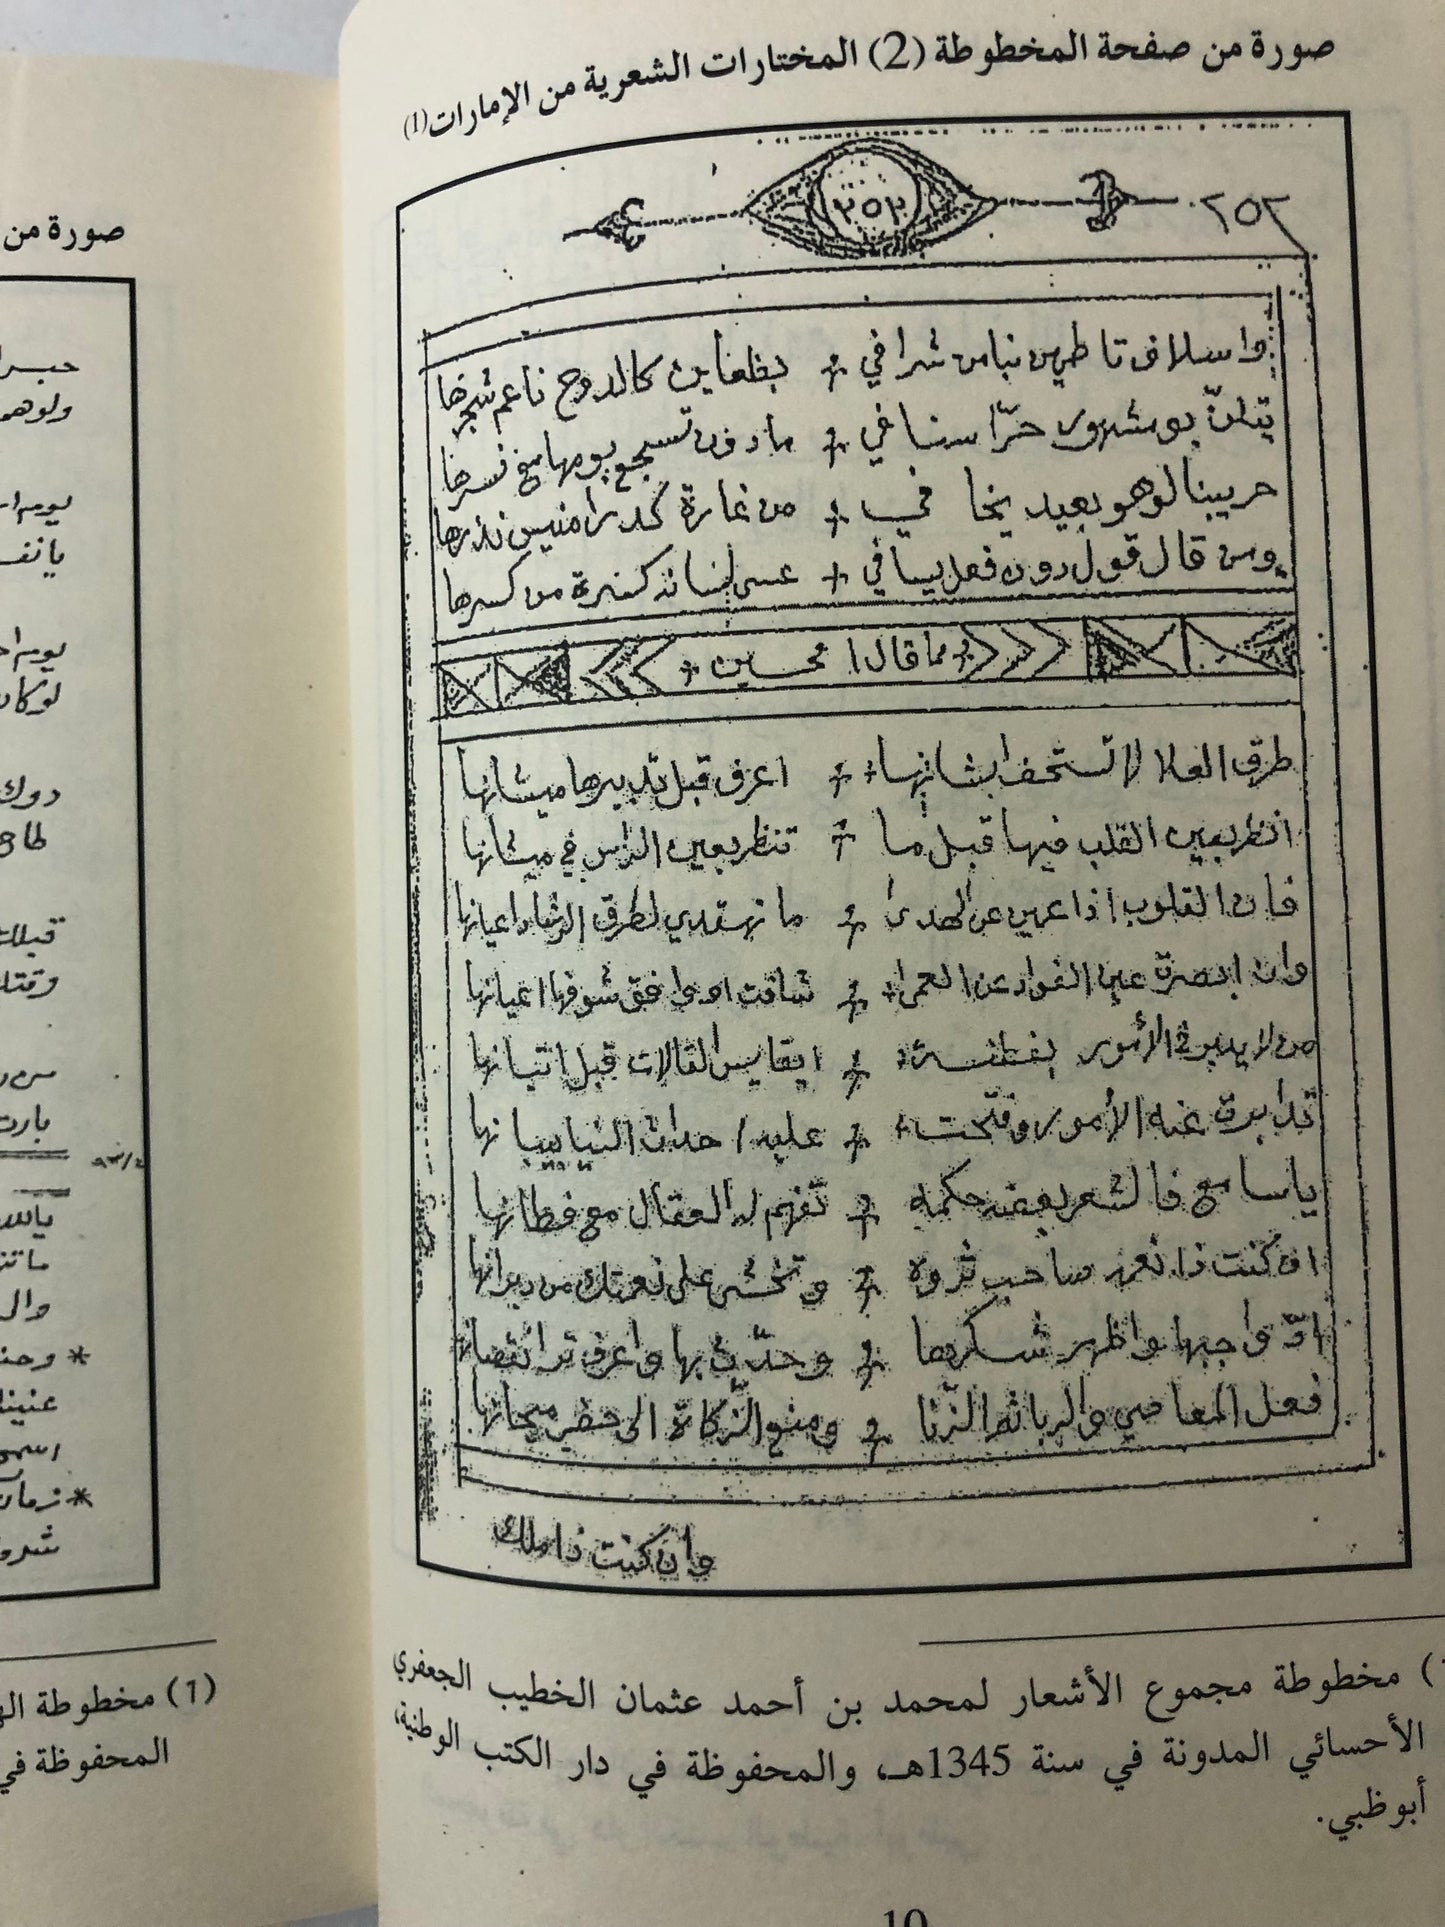 صورة من صفحة المخطوطة (2) المختارات الشعرية من الإمارات(1)
٢٥٢ ٢٥٢
واسلاف تاطي من نبا من شرافي بظعاين كالدوح ناعم شجرها
يتلنّ بومشهور حرّا سنافي مادون تسجع يومها مخ نسرها
حريبنا لوهو بعيد يخافي من غارة كدرا منيس نذرها
ومن قال قول دون فعل يسافي عسى لسانه كنبرة من كسرها
ومما قال امحسين
طرق العلا لا تستخف ابشانها اعرف قبل تدبيرها ميشانها
انظر بعين القلب فيها قبل ما تنظر بعين الراس في ميشانها
فان القلوب اذا عمين عن الهدى ما تهتدي لطرق الرشاد اعيانها
وان ابصرة عين الفواد عن العمى شافت او وافق شوفها اعيانها
من لا يدبر في الأمور بفطنه ايقايس القالات قبل اتيانها
تدابرة عنه الأمور وفتّحت عليه احداث النيا بيبانها
ياسامع فالشعر بعضه حكمه تفهم له العقال مع فطانها
ان كنت ذا نعمه صاحب ثروه وتخشى على نعمتك من ديرانها
ادّ واجبها واظهر شكرها وحدّث بها واعرف ترا نقصانها
فعل المعاصي والربا ثم الزّنا ومنع الزّكاة الى حضر ميحانها
وان كنت ذا ملك
) مخطوطة مجموع الأشعار لمحمد بن أحمد عثمان الخطيب الجعفري
الأحسائي المدونة في سنة 1345هـ، والمحفوظة في دار الكتب الوطنية،
أبوظبي.
10
صورة من
ولوهو
دوك
بارت
والـ
زمان
(1) مخطوطة
المحفوظة في